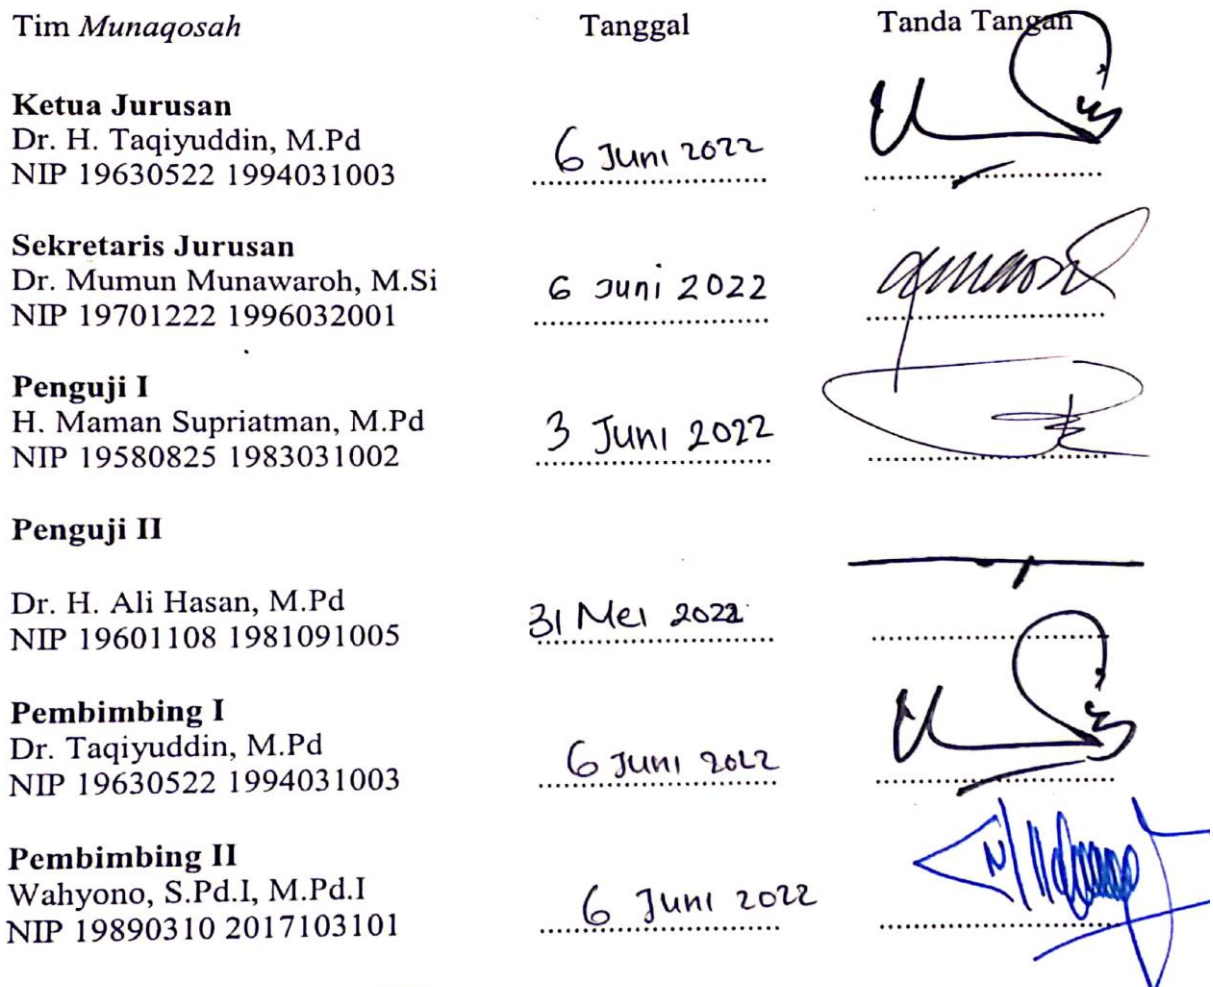 Tim Munaqosah Tanggal Tanda Tangan
Ketua Jurusan
Dr. H. Taqiyuddin, M.Pd
NIP 19630522 1994031003
6 Juni 2022
Sekretaris Jurusan
Dr. Mumun Munawaroh, M.Si
NIP 19701222 1996032001
6 Juni 2022
Penguji I
H. Maman Supriatman, M.Pd
NIP 19580825 1983031002
3 Juni 2022
Penguji II
Dr. H. Ali Hasan, M.Pd
NIP 19601108 1981091005
31 Mei 2022
Pembimbing I
Dr. Taqiyuddin, M.Pd
NIP 19630522 1994031003
6 Juni 2022
Pembimbing II
Wahyono, S.Pd.I, M.Pd.I
NIP 19890310 2017103101
6 Juni 2022